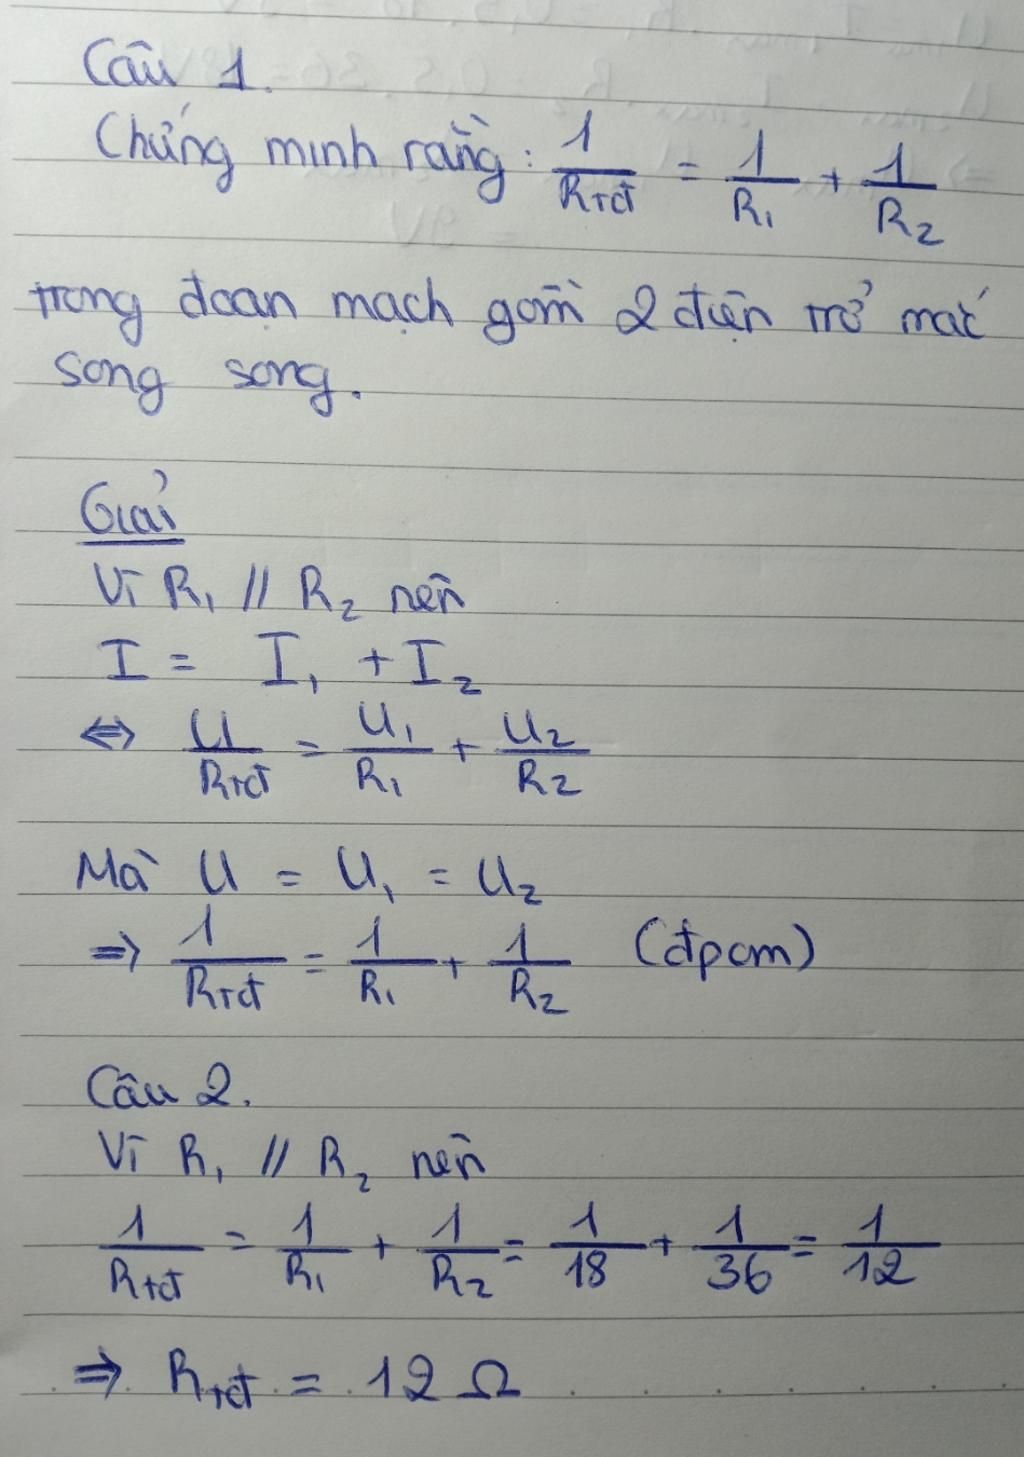 Câu 1.
Chứng minh rằng: 1/Rtđ = 1/R₁ + 1/R₂
trong đoạn mạch gồm 2 điện trở mắc
song song.
Giải
Vì R₁ // R₂ nên
I = I₁ + I₂
⇔ U/Rtđ = U₁/R₁ + U₂/R₂
Mà U = U₁ = U₂
⇒ 1/Rtđ = 1/R₁ + 1/R₂ (đpcm)
Câu 2.
Vì R₁ // R₂ nên
1/Rtđ = 1/R₁ + 1/R₂ = 1/18 + 1/36 = 1/12
⇒ Rtđ = 12 Ω